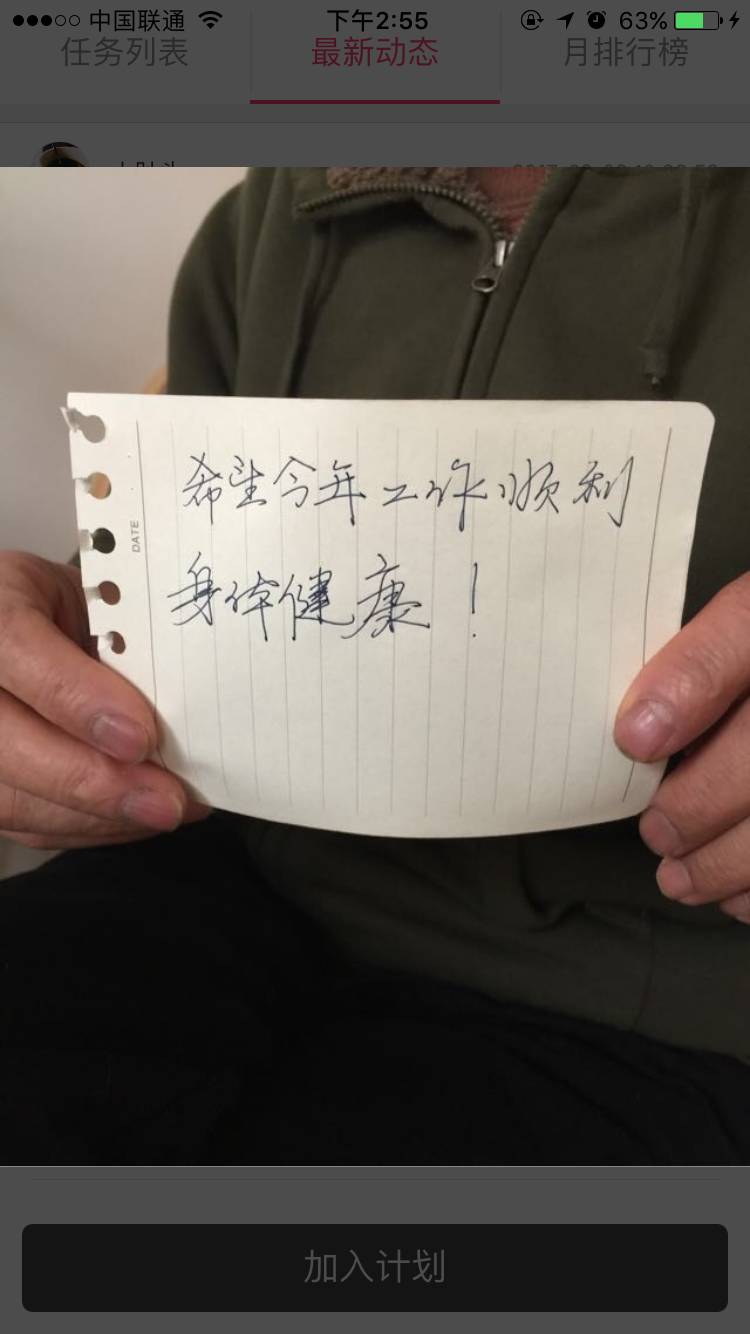 中国联通 下午2:55 63%
任务列表 最新动态 月排行榜
DATE
希望今年工作顺利
身体健康！
加入计划